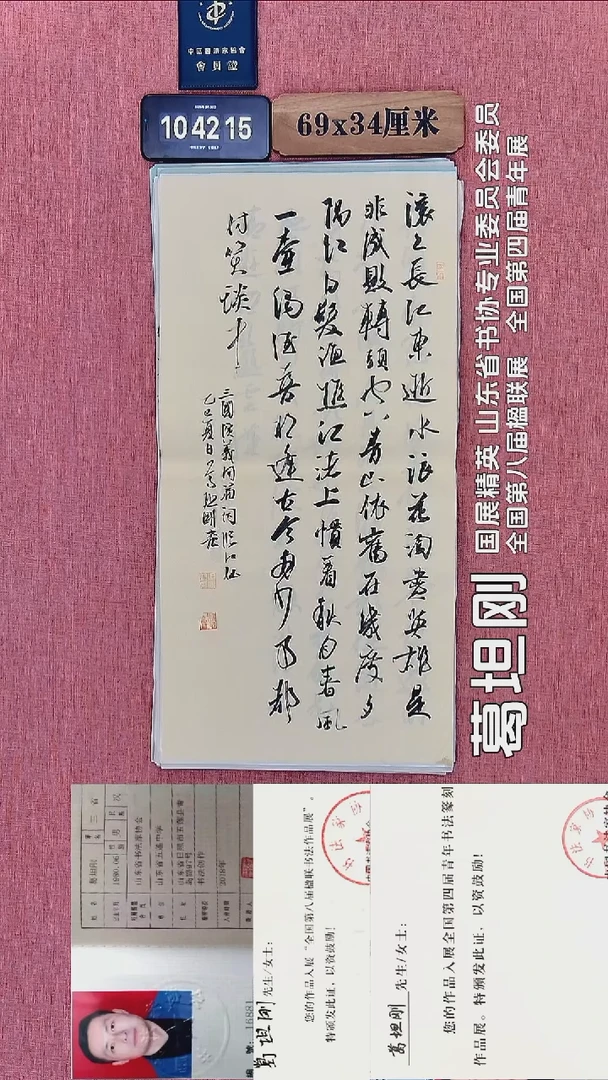 會員證
104215
69x34厘米
滚之長江東逝水浪花淘盡英雄是
非成敗轉頭空青山依舊在幾度夕
陽红白髮渔樵江渚上慣看秋月春風
一壶濁酒喜相逢古今多少事都
付笑談中
三國演義開篇詞臨江仙
乙巳夏日
葛坦刚
国展精英 山东省书协专业委员会委员
全国第八届楹联展 全国第四届青年展
山东省书法家协会
2018年
葛坦刚 先生/女士:
您的作品入展“全国第八届楹联书法作品展”。
特颁发此证，以资鼓励!
葛坦刚 先生/女士:
您的作品入展全国第四届青年书法篆刻
作品展。特颁发此证，以资鼓励!